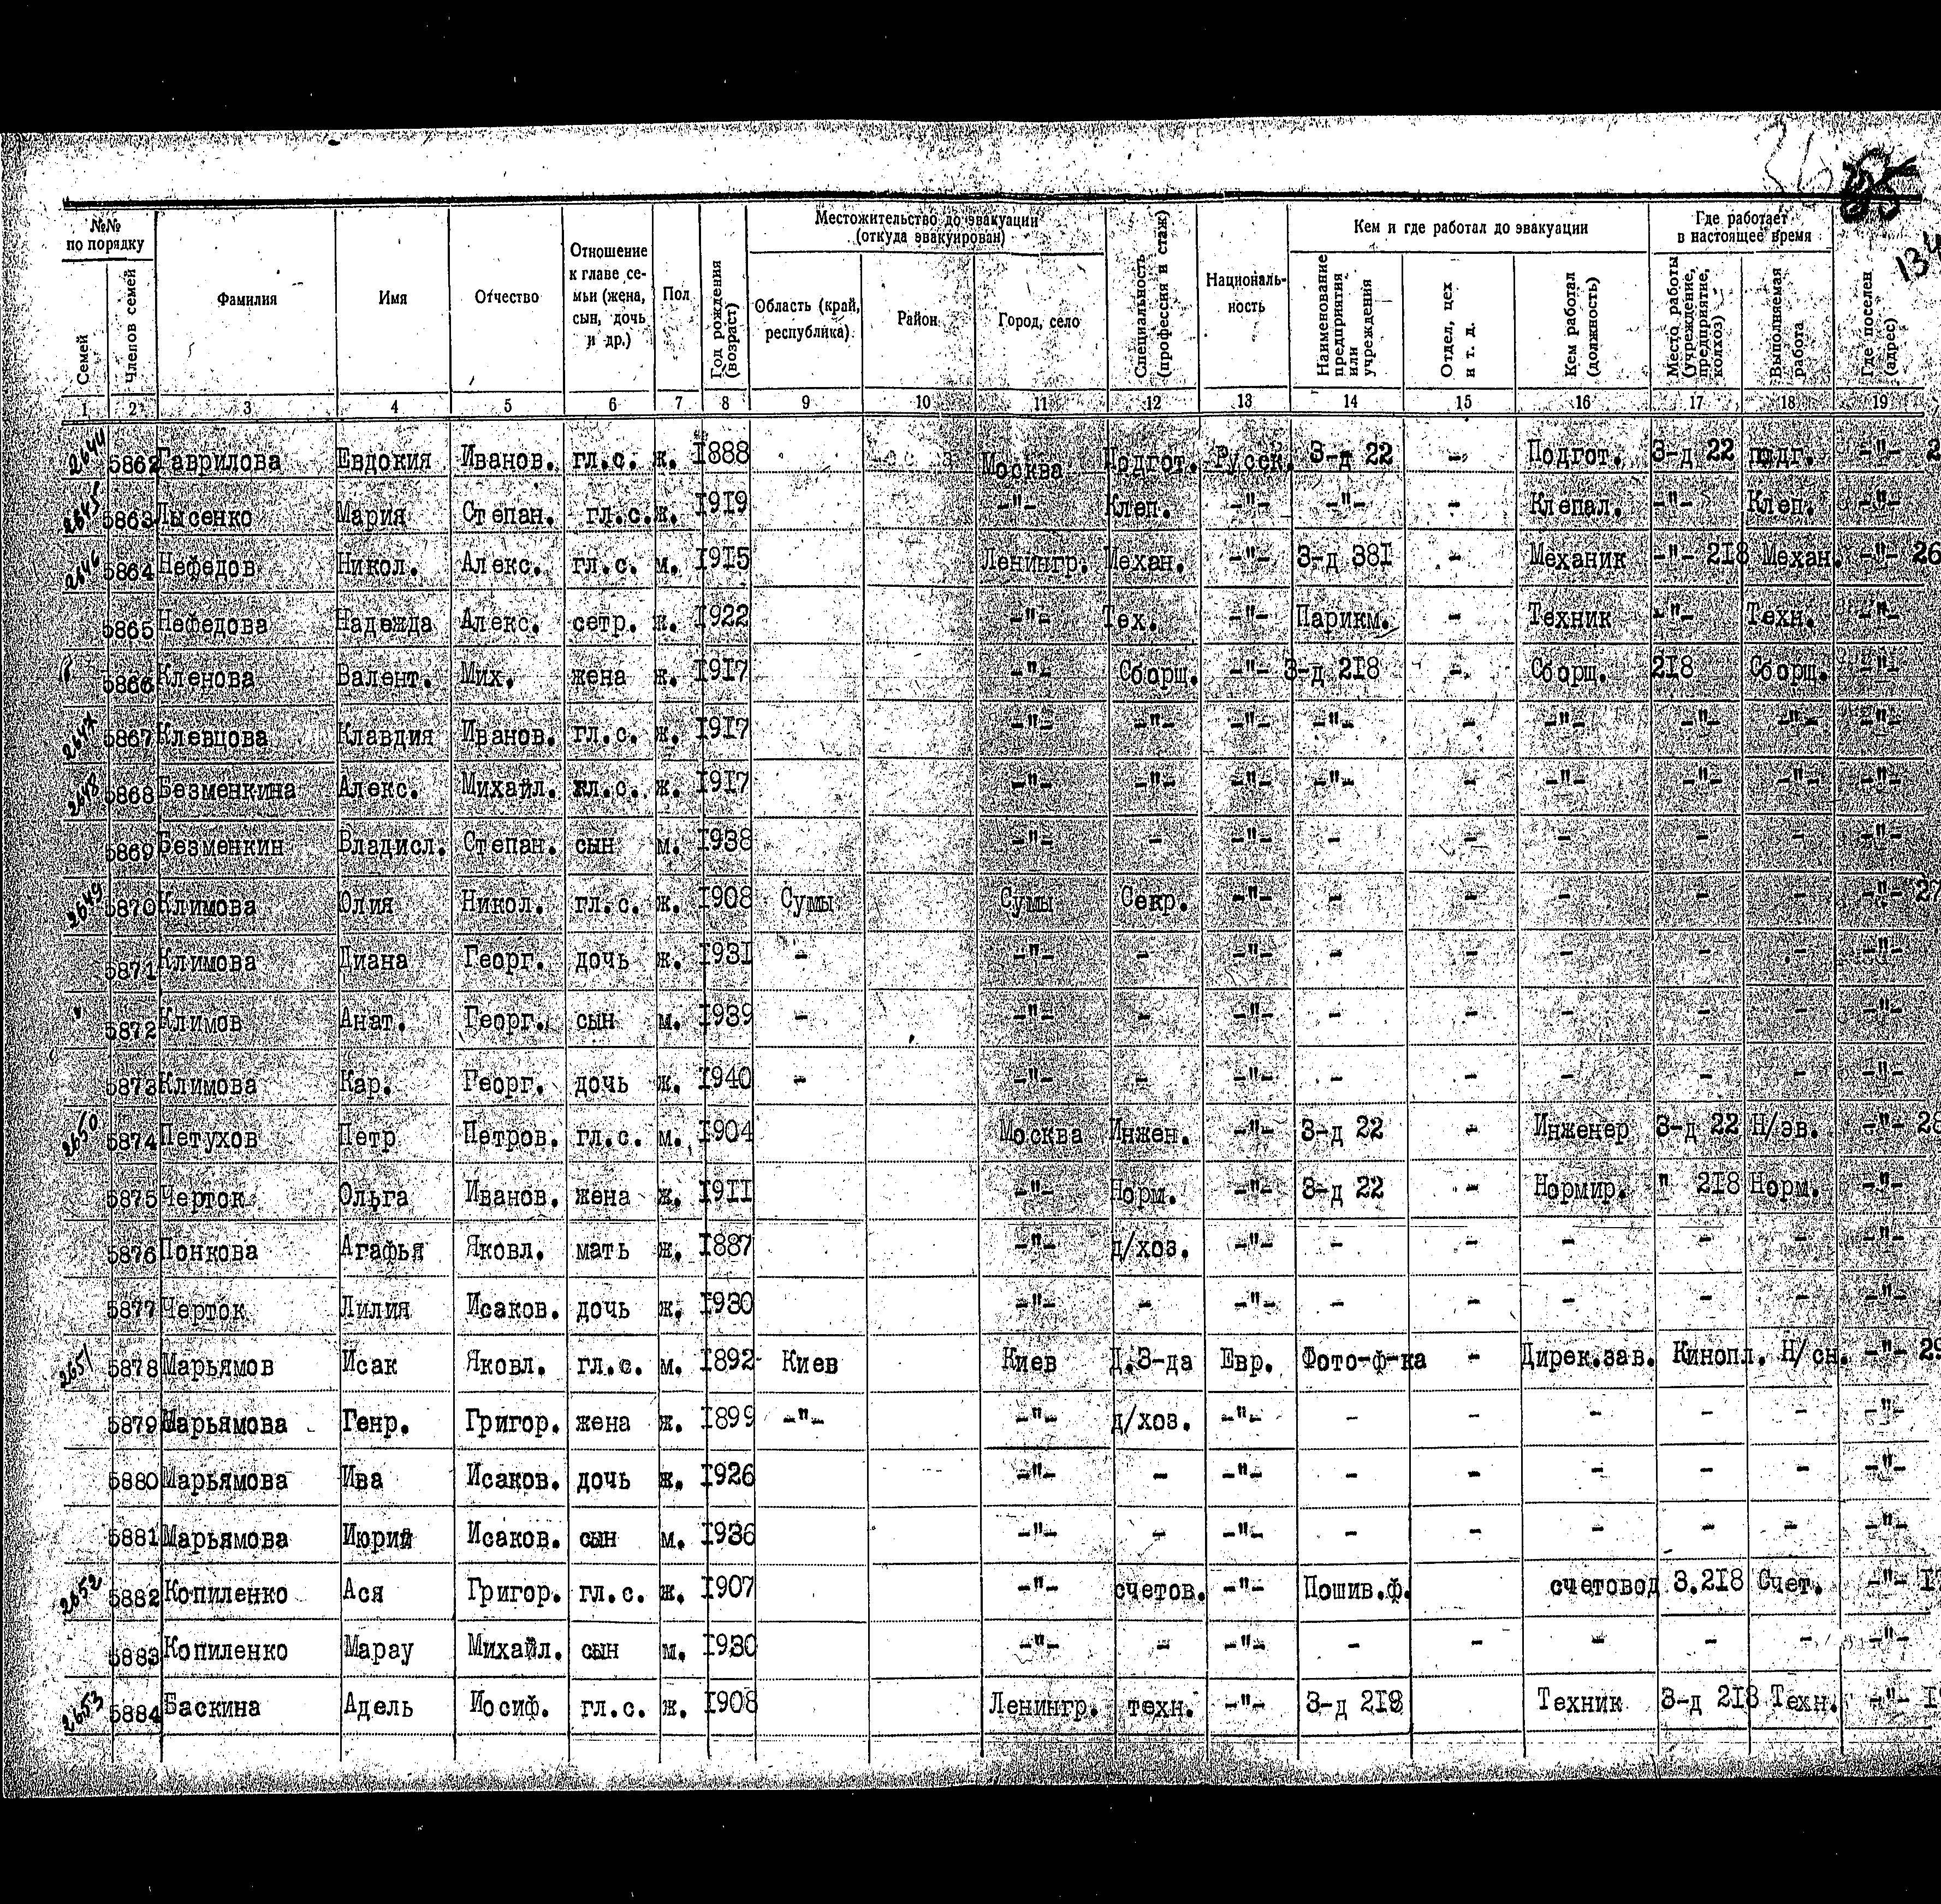 36
134
№№ по порядку | Фамилия | Имя | Отчество | Отношение к главе семьи (жена, сын, дочь и др.) | Пол | Год рождения (возраст) | Местожительство до эвакуации (откуда эвакуирован) | Специальность (профессия и стаж) | Националь-ность | Кем и где работал до эвакуации | Где работает в настоящее время | Где поселен (адрес)
Семей | Членов семей | Область (край, республика) | Район | Город, село | Наименование предприятия или учреждения | Отдел, цех и т. д. | Кем работал (должность) | Место работы (учреждение, предприятие, колхоз) | Выполняемая работа
1 2 3 4 5 6 7 8 9 10 11 12 13 14 15 16 17 18 19
2644 5862 Гаврилова Евдокия Иванов. гл.с. ж. 1888 Москва Подгот. Русск. З-д 22 - Подгот. З-д 22 подг. -"- 2
2645 5863 Лысенко Мария Степан. гл.с. ж. 1919 -"- Клеп. -"- -"- - Клепал. -"- Клеп. -"-
2646 5864 Нефедов Никол. Алекс. гл.с. м. 1915 Ленингр. Механ. -"- З-д 381 - Механик -"- 218 Механ. -"- 26
5865 Нефедова Надежда Алекс. сетр. ж. 1922 -"- Тех. -"- Парикм. - Техник -"- Техн. -"-
5866 Кленова Валент. Мих. жена ж. 1917 -"- Сборщ. -"- З-д 218 -. Сборщ. 218 Сборщ. -"-
2647 5867 Клевцова Клавдия Иванов. гл.с. ж. 1917 -"- -"- -"- -"- - -"- -"- -"- -"-
2648 5868 Безменкина Алекс. Михайл. гл.с. ж. 1917 -"- -"- -"- -"- - -"- -"- -"- -"-
5869 Безменкин Владисл. Степан. сын м. 1938 -"- - -"- - - - - - -"-
2649 5870 Климова Юлия Никол. гл.с. ж. 1908 Сумы Сумы Секр. -"- - - - - - -"- 27
5871 Климова Диана Георг. дочь ж. 1931 - -"- - -"- - - - - - -"-
" 5872 Климов Анат. Георг. сын м. 1939 - -"- - -"- - - - - - -"-
5873 Климова Кар. Георг. дочь ж. 1940 - -"- - -"- - - - - - -"-
2650 5874 Петухов Петр Петров. гл.с. м. 1904 Москва Инжен. -"- З-д 22 - Инженер З-д 22 Н/эв. -"- 28
5875 Черток Ольга Иванов. жена ж. 1911 -"- Норм. -"- З-д 22 - Нормир. " 218 Норм. -"-
5876 Понкова Агафья Яковл. мать ж. 1887 -"- д/хоз. -"- - - - - - -"-
5877 Черток Лилия Исаков. дочь ж. 1930 -"- - -"- - - - - - -"-
2651 5878 Марьямов Исак Яковл. гл.с. м. 1892 Киев Киев Д.З-да Евр. Фото-ф-ка - Дирек.зав. Кинопл. Н/сн. -"- 29
5879 Марьямова Генр. Григор. жена ж. 1899 -"- -"- д/хоз. -"- - - - - - -"-
5880 Марьямова Ива Исаков. дочь ж. 1926 -"- - -"- - - - - - -"-
5881 Марьямова Июрий Исаков. сын м. 1936 -"- - -"- - - - - - -"-
2652 5882 Копиленко Ася Григор. гл.с. ж. 1907 -"- счетов. -"- Пошив.ф. счетовод З.218 Счет. -"- 17
5883 Копиленко Марау Михайл. сын м. 1930 -"- - -"- - - - - - -"-
2653 5884 Баскина Адель Иосиф. гл.с. ж. 1908 Ленингр. техн. -"- З-д 218 Техник З-д 218 Техн. -"-